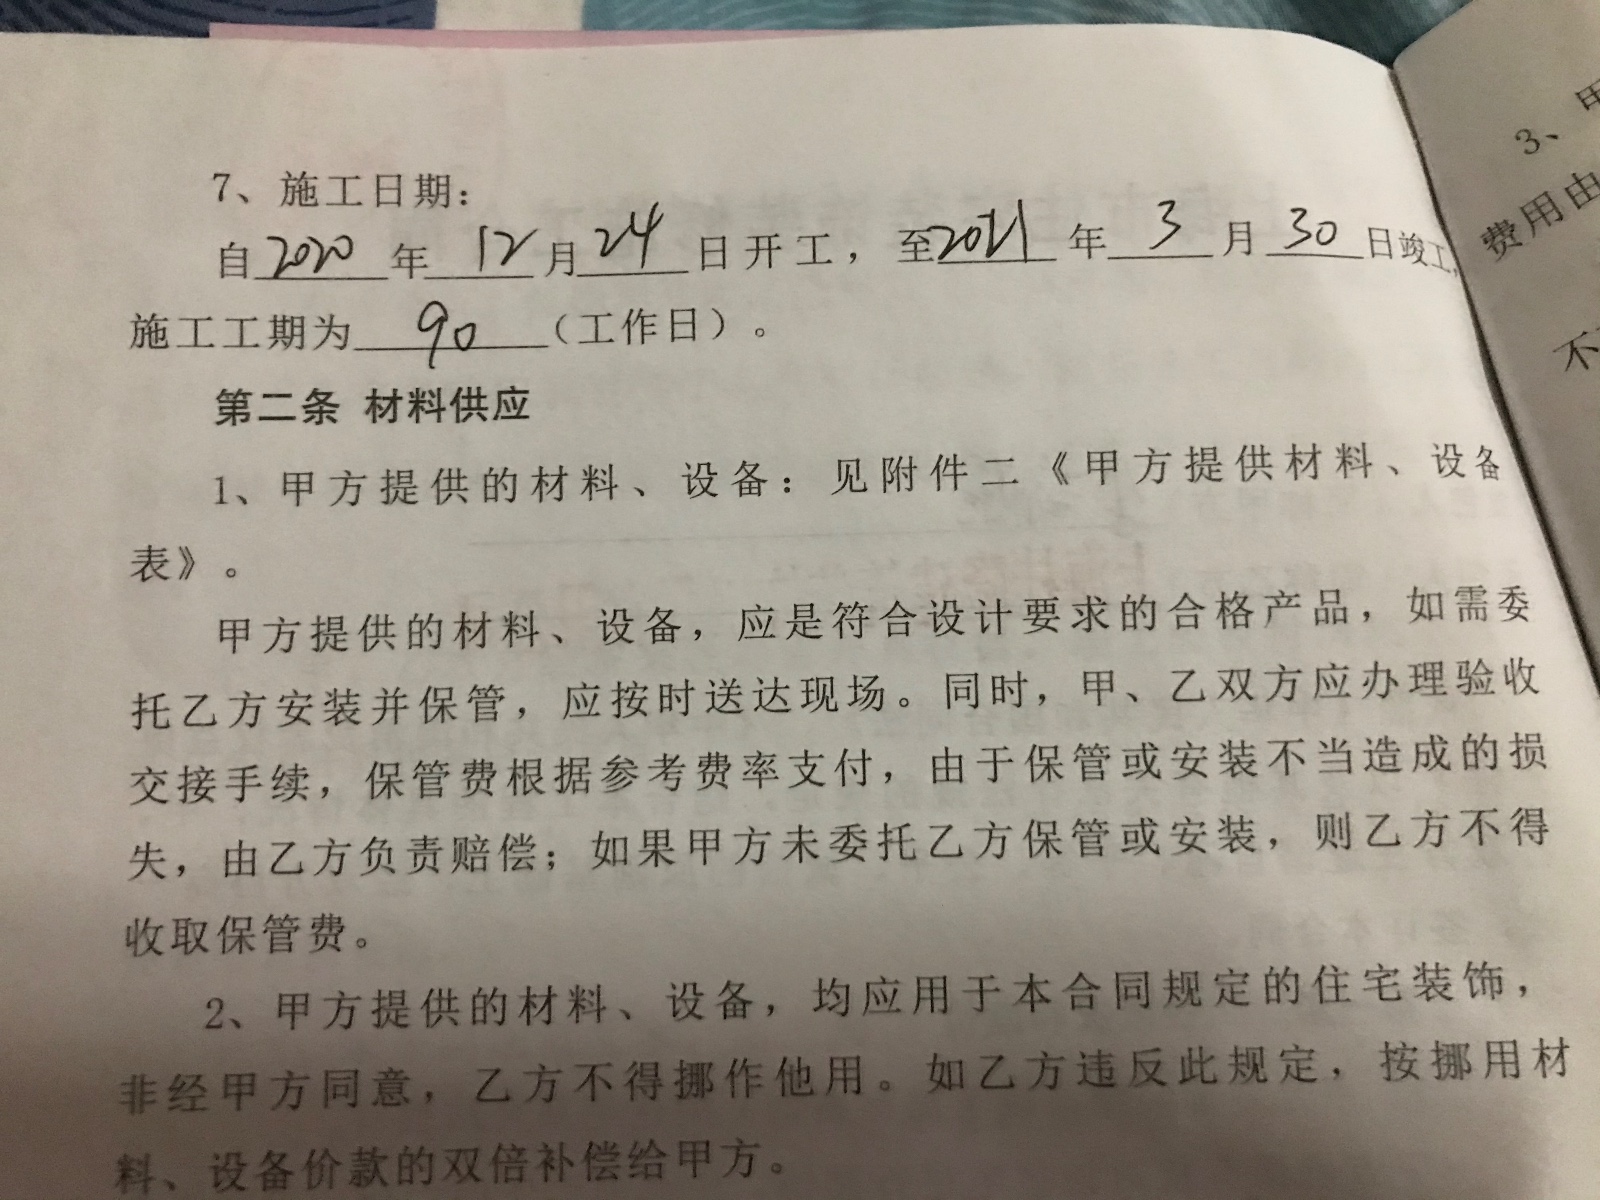 7、施工日期：
自2020年12月24日开工，至2021年3月30日竣工，
施工工期为90（工作日）。
第二条 材料供应
1、甲方提供的材料、设备：见附件二《甲方提供材料、设备
表》。
甲方提供的材料、设备，应是符合设计要求的合格产品，如需委
托乙方安装并保管，应按时送达现场。同时，甲、乙双方应办理验收
交接手续，保管费根据参考费率支付，由于保管或安装不当造成的损
失，由乙方负责赔偿；如果甲方未委托乙方保管或安装，则乙方不得
收取保管费。
2、甲方提供的材料、设备，均应用于本合同规定的住宅装饰，
非经甲方同意，乙方不得挪作他用。如乙方违反此规定，按挪用材
料、设备价款的双倍补偿给甲方。
3、甲
费用由
不